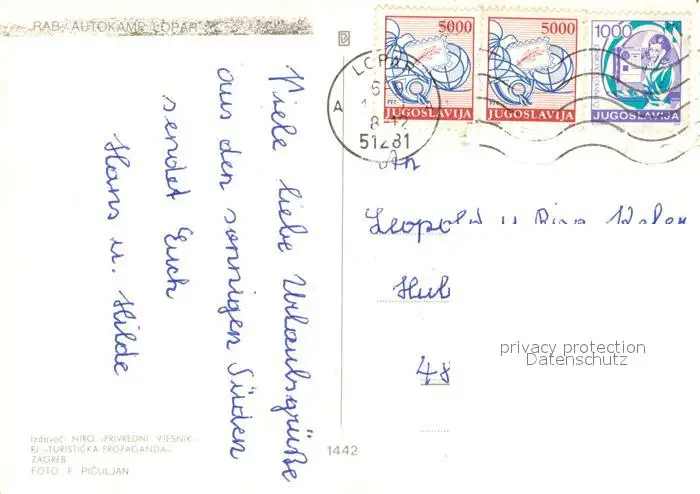 RAB, AUTOKAMP LOPAR
Viele liebe Urlaubsgrüße
aus den sonnigen Süden
sendet Euch
Hans u. Hilde
Izdavač: NIRO »PRIVREDNI VJESNIK«
RJ »TURISTIČKA PROPAGANDA«
ZAGREB
FOTO F. PIČULJAN
1442
5000
JUGOSLAVIJA
5000
JUGOSLAVIJA
1000
JUGOSLAVIJA
LOPAR
A
51281
An
Leopold u
Hub
48
privacy protection
Datenschutz